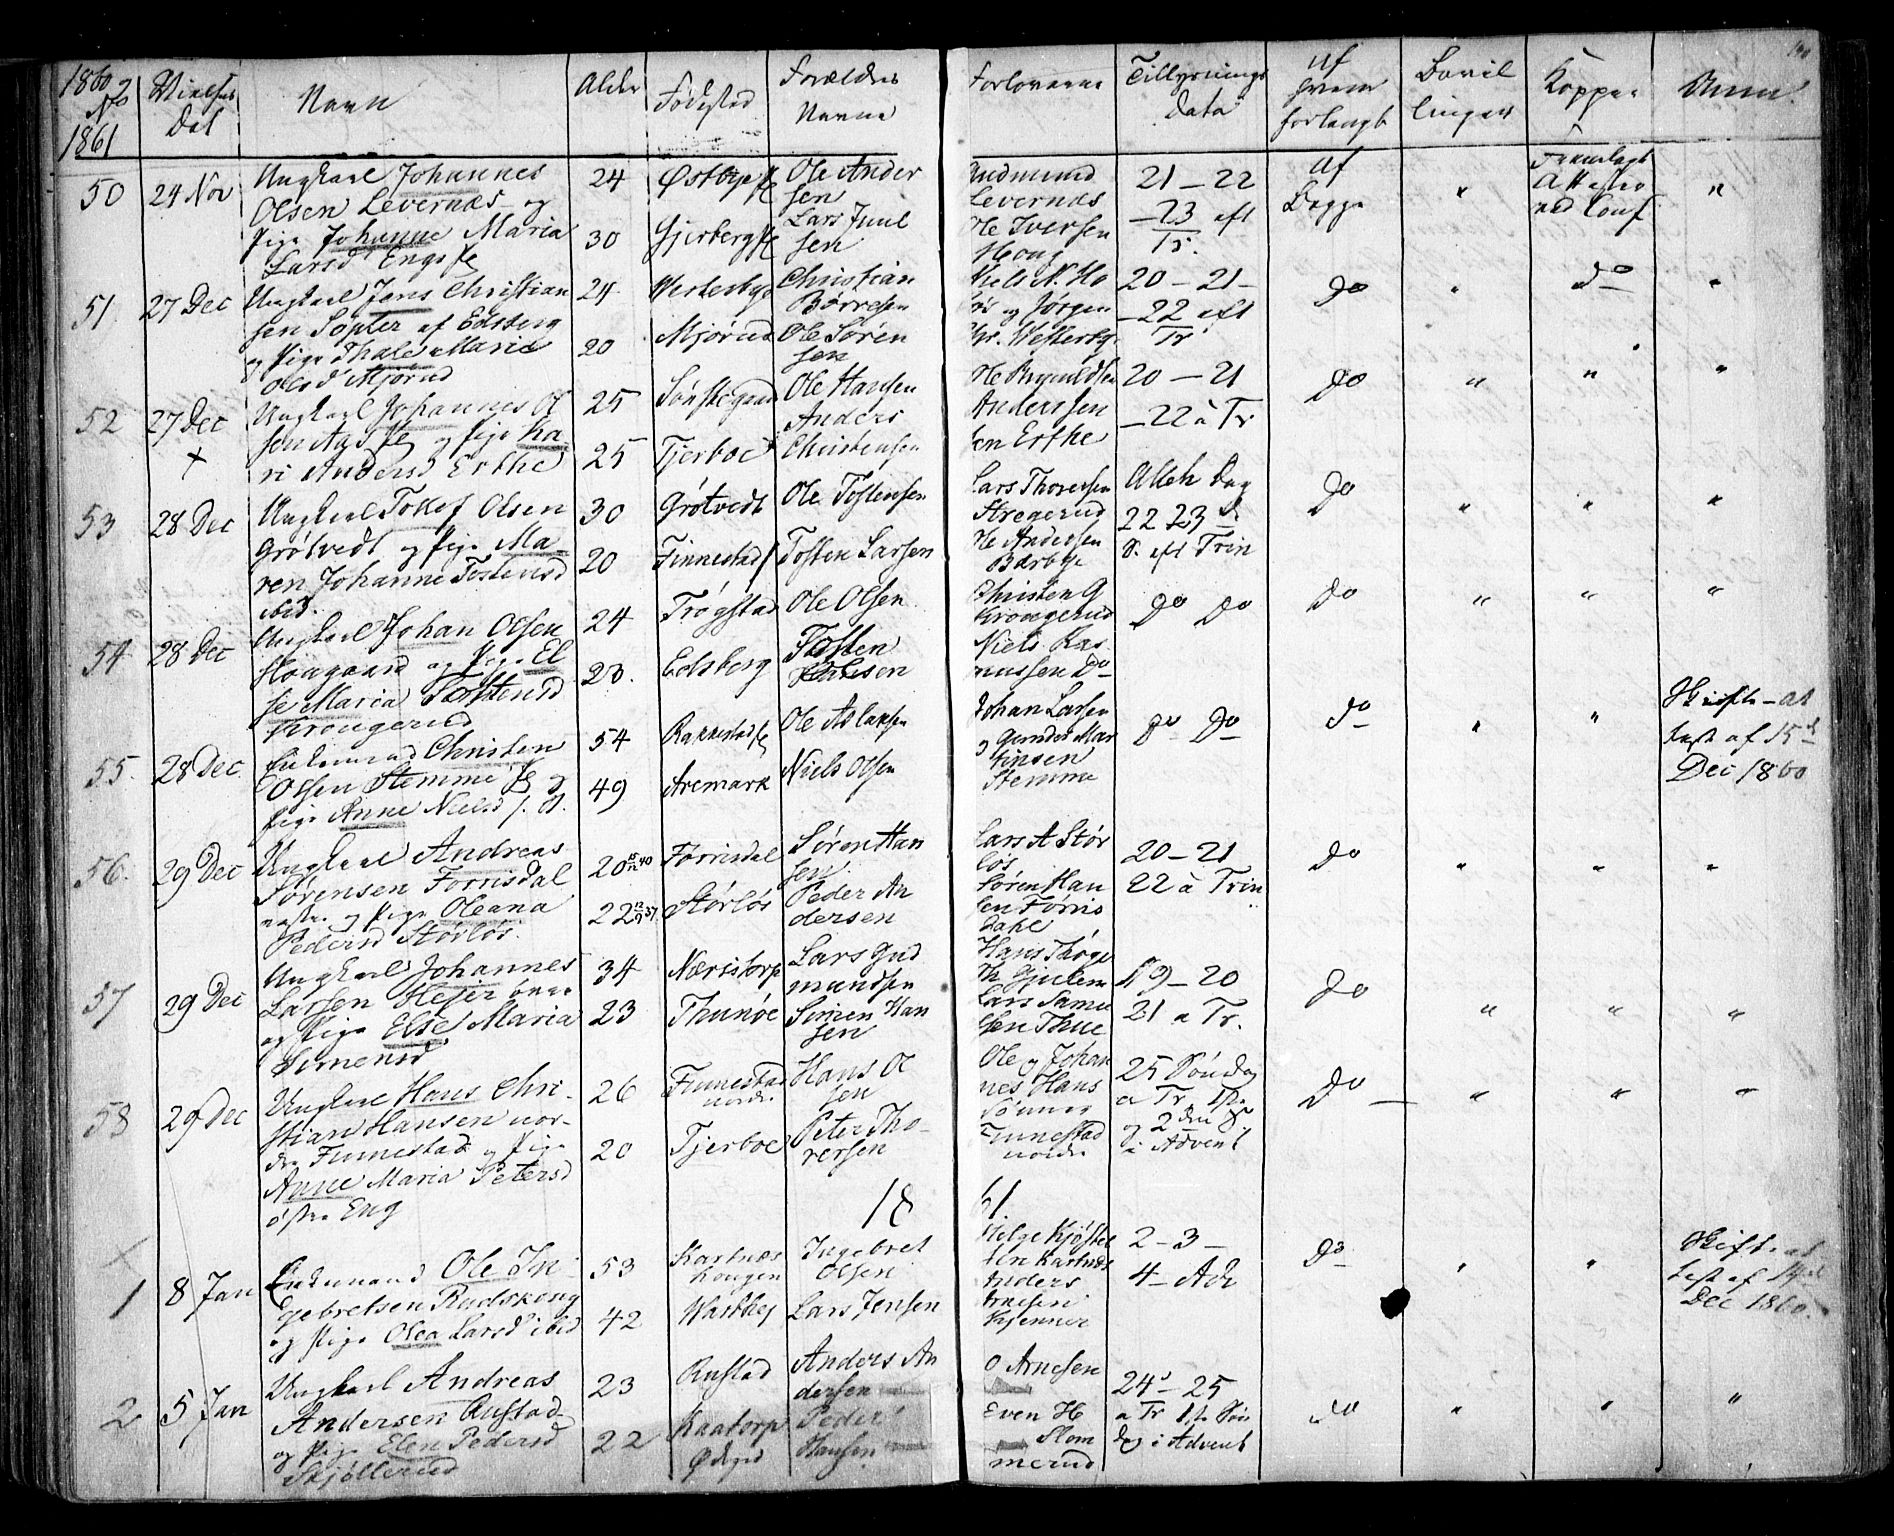 1860
No
1861
Vielses
Dat
Navn
Alder
Fødested
Forældres
Navne
Forlovere
Tillysnings
Data
af
hvem
forlangt
Bevil
linger
Kopper
Anm.
50 24 Nov
Ungkarl Johannes
Olsen Levernæs og
Pige Johanne Maria
Larsd Engs
24
30
Østby
Gjerberg
Ole Ander
sen
Lars Juul
sen
Gudmund
Levernæs
Ole Iversen
Houg
21 – 22
– 23 eft
Tr.
Af
Begge
"
Fremlagt
Attester
ved Conf
"
51 27 Dec
Ungkarl Jens Christian
sen Sopter af Edsberg
og Pige Thale Marie
Olsd Mjørud
24
20
Westerbye
Mjørud
Christian
Børresen
Ole Søren
sen
Niels N. Ho
og Jørgen
Chr. Westerby
20 – 21 –
– 22 eft
Tr
Do
"
Do
"
52 27 Dec
+
Ungkarl Johannes Ol
sen Aas og Pige Ka
ri Andersd Erthe
25
25
Sønstegaard
Tjerboe
Ole Hansen
Anders
Christensen
Ole Brynildsen
Anderssen
sen Erthe
20 – 21
– 22 à Tr
Do
"
"
"
53 28 Dec
Ungkarl Tollef Olsen
Grøtvedt og Pige Ma
ren Johanne Tostensd
ibid.
30
20
Grøtvedt
Finnestad
Ole Tostensen
Tosten Larsen
Lars Thoresen
Stregerud
Ole Andersen
Bærbye
Alleh Dag
22 23 d
S. eft Trin
Do
"
"
"
54 28 Dec
Ungkarl Johan Olsen
Hougaard og Pige El
se Maria Tostensd
Krongerud
24
23.
Trøgstad
Edsberg
Ole Olsen
Tosten
Christen G
Krongerud
Niels Ras
mussen Do
Do Do
Do
"
"
"
55. 28 Dec
Enkemand Christen
Olsen Stemme og
Pige Anne Nielsd s. S.
54
49
Rakkestad
Aremark
Ole Aslaksen
Niels Olsen
Johan Larsen
og Gunder Mar
tinsen
Stemme
Do Do
Do
"
"
Skifte-at
test af 15d
Dec 1860
56. 29 Dec
Ungkarl Andreas
Sørensen Forrisdal
og Pige Oleana
Pedersd Størløs
20
22
Forrisdal
Størløs
Søren Han
sen
Peder An
dersen
Lars A Stør
løs
Søren Han
sen Forris
dahl
20 – 21
22 à Trin
Do
"
"
"
57 29 Dec
Ungkarl Johannes
Larsen
og Pige Else Maria
Simensd
34
23
Næristorp
Thunøe
Lars Gud
mundsen
Simen Han
sen
Hans
Th Gjulem
Lars Samu
elsen Thue
19 – 20
21 a Tr.
Do
"
"
"
58 29 Dec
Ungkarl Hans Chri
stian Hansen nor
dre Finnestad og Pige
Anne Maria Petersd
østre Eng
26
20
Finnestad
nordre
Tjerboe
Hans Ol
sen
Peter Tho
rersen
Ole og Johan
nes Hans
Sønner
Finnestad
nordre
25 Søndag
a Tr 1ste
og 2den
S. i Advent
Do
"
"
"
18 61
1 8 Jan
Enkemand Ole In
gebretsen Rudskoug
og Pige Olea Larsd ibid
53
42
Kartnæs
kougen
Ingebret
Olsen
Lars Jensen
Helge Kjøstel
sen Kartnæs
Anders
Arnesen
Kjenner
2 – 3 –
4 – Adv
Do
"
"
Skifte at
test af
Dec 1860.
2 5 Jan
Ungkarl Andreas
Andersen Rustad
og Pige Elen Pedersd
Skjøllerud
23
22
Rustad
Kaatorp
Ødegd
Anders An
dersen
Peder
Hansen
O Arnesen
Even H
Slom
merud
24 – 25
a Tr 1ste Søn
dag i Advent
Do
"
"
"